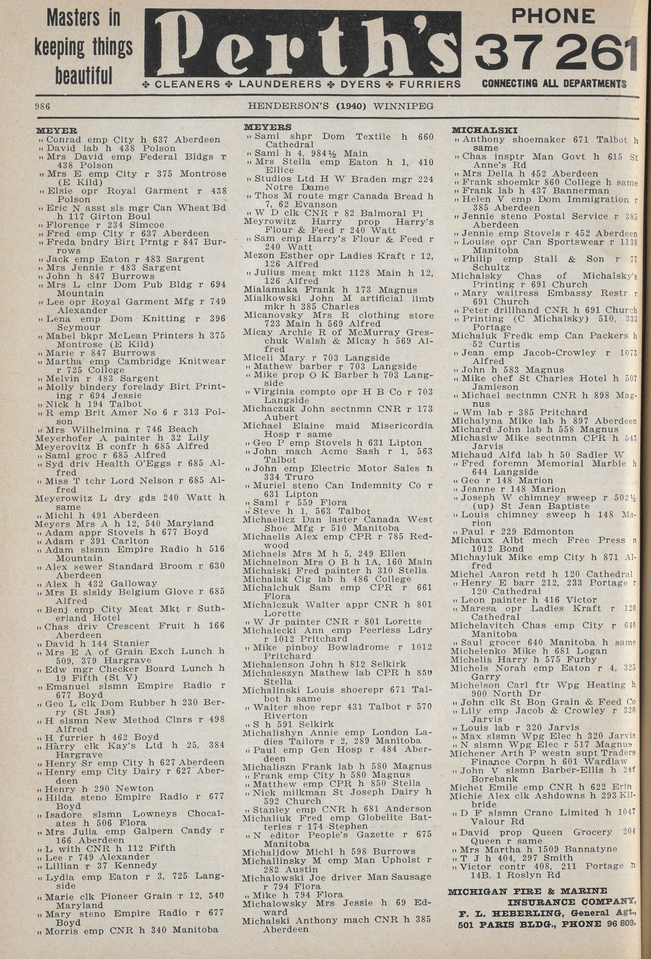 Masters in
keeping things
beautiful
Perth's
✤ CLEANERS ✤ LAUNDERERS ✤ DYERS ✤ FURRIERS
PHONE
37 261
CONNECTING ALL DEPARTMENTS
986
HENDERSON'S (1940) WINNIPEG
MEYER
„ Conrad emp City h 637 Aberdeen
„ David lab h 438 Polson
„ Mrs David emp Federal Bldgs r
438 Polson
„ Mrs E emp City r 375 Montrose
(E Kild)
„ Elsie opr Royal Garment r 438
Polson
„ Eric N asst sls mgr Can Wheat Bd
h 117 Girton Boul
„ Florence r 234 Simcoe
„ Fred emp City r 637 Aberdeen
„ Freda bndry Birt Prntg r 847 Bur-
rows
„ Jack emp Eaton r 483 Sargent
„ Mrs Jennie r 483 Sargent
„ John h 847 Burrows
„ Mrs L clnr Dom Pub Bldg r 694
Mountain
„ Lee opr Royal Garment Mfg r 749
Alexander
„ Lena emp Dom Knitting r 396
Seymour
„ Mabel bkpr McLean Printers h 375
Montrose (E Kild)
„ Marie r 847 Burrows
„ Martha emp Cambridge Knitwear
r 725 College
„ Melvin r 483 Sargent
„ Molly bindery forelady Birt Print-
ing r 694 Jessie
„ Nick h 194 Talbot
„ R emp Brit Amer No 6 r 313 Pol-
son
„ Mrs Wilhelmina r 746 Beach
Meyerhofer A painter h 32 Lily
Meyerovitz B confr h 685 Alfred
„ Saml groc r 685 Alfred
„ Syd driv Health O'Eggs r 685 Al-
fred
„ Miss T tchr Lord Nelson r 685 Al-
fred
Meyerowitz L dry gds 240 Watt h
same
„ Michl h 491 Aberdeen
Meyers Mrs A h 12, 540 Maryland
„ Adam appr Stovels h 677 Boyd
„ Adam r 391 Carlton
„ Adam slsmn Empire Radio h 516
Mountain
„ Alex sewer Standard Broom r 630
Aberdeen
„ Alex h 432 Galloway
„ Mrs B slsldy Belgium Glove r 685
Alfred
„ Benj emp City Meat Mkt r Suth-
erland Hotel
„ Chas driv Crescent Fruit h 166
Aberdeen
„ David h 144 Stanier
„ Mrs E A of Grain Exch Lunch h
509, 379 Hargrave
„ Edw mgr Checker Board Lunch h
19 Fifth (St V)
„ Emanuel slsmn Empire Radio r
677 Boyd
„ Geo L clk Dom Rubber h 230 Ber-
ry (St Jas)
„ H slsmn New Method Clnrs r 498
Alfred
„ H furrier h 462 Boyd
„ Harry clk Kay's Ltd h 25, 384
Hargrave
„ Henry Sr emp City h 627 Aberdeen
„ Henry emp City Dairy r 627 Aber-
deen
„ Henry h 290 Newton
„ Hilda steno Empire Radio r 677
Boyd
„ Isadore slsmn Lowneys Chocol-
ates h 506 Flora
„ Mrs Julia emp Galpern Candy r
166 Aberdeen
„ L with CNR h 112 Fifth
„ Lee r 749 Alexander
„ Lillian r 37 Kennedy
„ Lydia emp Eaton r 3, 725 Lang-
side
„ Marie clk Pioneer Grain r 12, 540
Maryland
„ Mary steno Empire Radio r 677
Boyd
„ Morris emp CNR h 340 Manitoba
MEYERS
„ Saml shpr Dom Textile h 660
Cathedral
„ Saml h 4, 984½ Main
„ Mrs Stella emp Eaton h 1, 410
Ellice
„ Studios Ltd H W Braden mgr 224
Notre Dame
„ Thos M route mgr Canada Bread h
7, 62 Evanson
„ W D clk CNR r 82 Balmoral Pl
Meyrowitz Harry prop Harry's
Flour & Feed r 240 Watt
„ Sam emp Harry's Flour & Feed r
240 Watt
Mezon Esther opr Ladies Kraft r 12,
126 Alfred
„ Julius meat mkt 1128 Main h 12,
126 Alfred
Mialamaka Frank h 173 Magnus
Mialkowski John M artificial limb
mkr h 385 Charles
Micanovsky Mrs R clothing store
723 Main h 569 Alfred
Micay Archie R of McMurray Gres-
chuk Walsh & Micay h 569 Al-
fred
Miceli Mary r 703 Langside
„ Mathew barber r 703 Langside
„ Mike prop O K Barber h 703 Lang-
side
„ Virginia compto opr H B Co r 703
Langside
Michaczuk John sectnmn CPR r 173
Aubert
Michael Elaine maid Misericordia
Hosp r same
„ Geo P emp Stovels h 631 Lipton
„ John mach Acme Sash r 1, 563
Talbot
„ John emp Electric Motor Sales h
334 Truro
„ Muriel steno Can Indemnity Co r
631 Lipton
„ Saml r 559 Flora
„ Steve h 1, 563 Talbot
Michaelicz Dan laster Canada West
Shoe Mfg r 510 Manitoba
Michaelis Alex emp CPR r 785 Red-
wood
Michaels Mrs M h 5, 249 Ellen
Michaelson Mrs O B h 1A, 160 Main
Michaiski Fred painter h 310 Stella
Michalak Cig lab h 486 College
Michalchuk Sam emp CPR r 661
Flora
Michalczuk Walter appr CNR h 801
Lorette
„ W Jr painter CNR r 801 Lorette
Michalecki Ann emp Peerless Ldry
r 1012 Pritchard
„ Mike pinboy Bowladrome r 1012
Pritchard
Michalenson John h 812 Selkirk
Michaleszyn Mathew lab CPR h 850
Stella
Michalinski Louis shoerepr 671 Tal-
bot h same
„ Walter shoe repr 431 Talbot r 570
Riverton
„ S h 591 Selkirk
Michalishyn Annie emp London La-
dies Tailors r 2, 289 Manitoba
„ Paul emp Gen Hosp r 484 Aber-
deen
Michaliszn Frank lab h 580 Magnus
„ Frank emp City h 580 Magnus
„ Matthew emp CPR h 850 Stella
„ Nick milkman St Joseph Dairy h
592 Church
„ Stanley emp CNR h 681 Anderson
Michaliuk Fred emp Globelite Bat-
teries r 174 Stephen
„ N editor People's Gazette r 675
Manitoba
Michaljdow Michl h 598 Burrows
Michallinsky M emp Man Upholst r
282 Austin
Michalowski Joe driver Man Sausage
r 794 Flora
„ Mike h 794 Flora
Michalowsky Mrs Jessie h 69 Ed-
ward
Michalski Anthony mach CNR h 385
Aberdeen
MICHALSKI
„ Anthony shoemaker 671 Talbot h
same
„ Chas insptr Man Govt h 615 St
Anne's Rd
„ Mrs Della h 452 Aberdeen
„ Frank shoemkr 860 College h same
„ Frank lab h 437 Bannerman
„ Helen V emp Dom Immigration r
385 Aberdeen
„ Jennie steno Postal Service r 385
Aberdeen
„ Jennie emp Stovels r 452 Aberdeen
„ Louise opr Can Sportswear r 1138
Manitoba
„ Philip emp Stall & Son r 77
Schultz
Michalsky Chas of Michalsky's
Printing r 691 Church
„ Mary waitress Embassy Restr r
691 Church
„ Peter drillhand CNR h 691 Church
„ Printing (C Michalsky) 510, 333
Portage
Michaluk Fredk emp Can Packers h
52 Curtis
„ Jean emp Jacob-Crowley r 1073
Alfred
„ John h 583 Magnus
„ Mike chef St Charles Hotel h 507
Jamieson
„ Michael sectnmn CNR h 898 Mag-
nus
„ Wm lab r 385 Pritchard
Michalyna Mike lab h 897 Aberdeen
Michard John lab h 558 Magnus
Michasiw Mike sectnmn CPR h 541
Jarvis
Michaud Alfd lab h 50 Sadler W
„ Fred foremn Memorial Marble h
644 Langside
„ Geo r 148 Marion
„ Jeanne r 148 Marion
„ Joseph W chimney sweep r 502½
(up) St Jean Baptiste
„ Louis chimney sweep h 148 Ma-
rion
„ Paul r 229 Edmonton
Michaux Albt mech Free Press h
1012 Bond
Michayluk Mike emp City h 871 Al-
fred
Michel Aaron retd h 120 Cathedral
„ Henry E barr 212, 233 Portage r
120 Cathedral
„ Leon painter h 416 Victor
„ Maresa opr Ladies Kraft r 120
Cathedral
Michelavitch Chas emp City r 640
Manitoba
„ Saul grocer 640 Manitoba h same
Michelenko Mike h 681 Logan
Michelis Harry h 575 Furby
Michels Norah emp Eaton r 4, 325
Garry
Michelson Carl ftr Wpg Heating h
900 North Dr
„ John clk St Bon Grain & Feed Co
„ Lily emp Jacob & Crowley r 320
Jarvis
„ Louis lab r 320 Jarvis
„ Max slsmn Wpg Elec h 320 Jarvis
„ N slsmn Wpg Elec r 517 Magnus
Michener Arth P westn supt Traders
Finance Corpn h 601 Wardlaw
„ John V slsmn Barber-Ellis h 247
Borebank
Michet Emile emp CNR h 622 Erin
Michie Alex clk Ashdowns h 293 Kil-
bride
„ D F slsmn Crane Limited h 1047
Valour Rd
„ David prop Queen Grocery 204
Queen r same
„ Mrs Martha h 1509 Bannatyne
„ T J h 404, 297 Smith
„ Victor contr 408, 211 Portage h
14B, 1 Roslyn Rd
MICHIGAN FIRE & MARINE
INSURANCE COMPANY,
F. L. HEBERLING, General Agt.,
501 PARIS BLDG., PHONE 96 809.